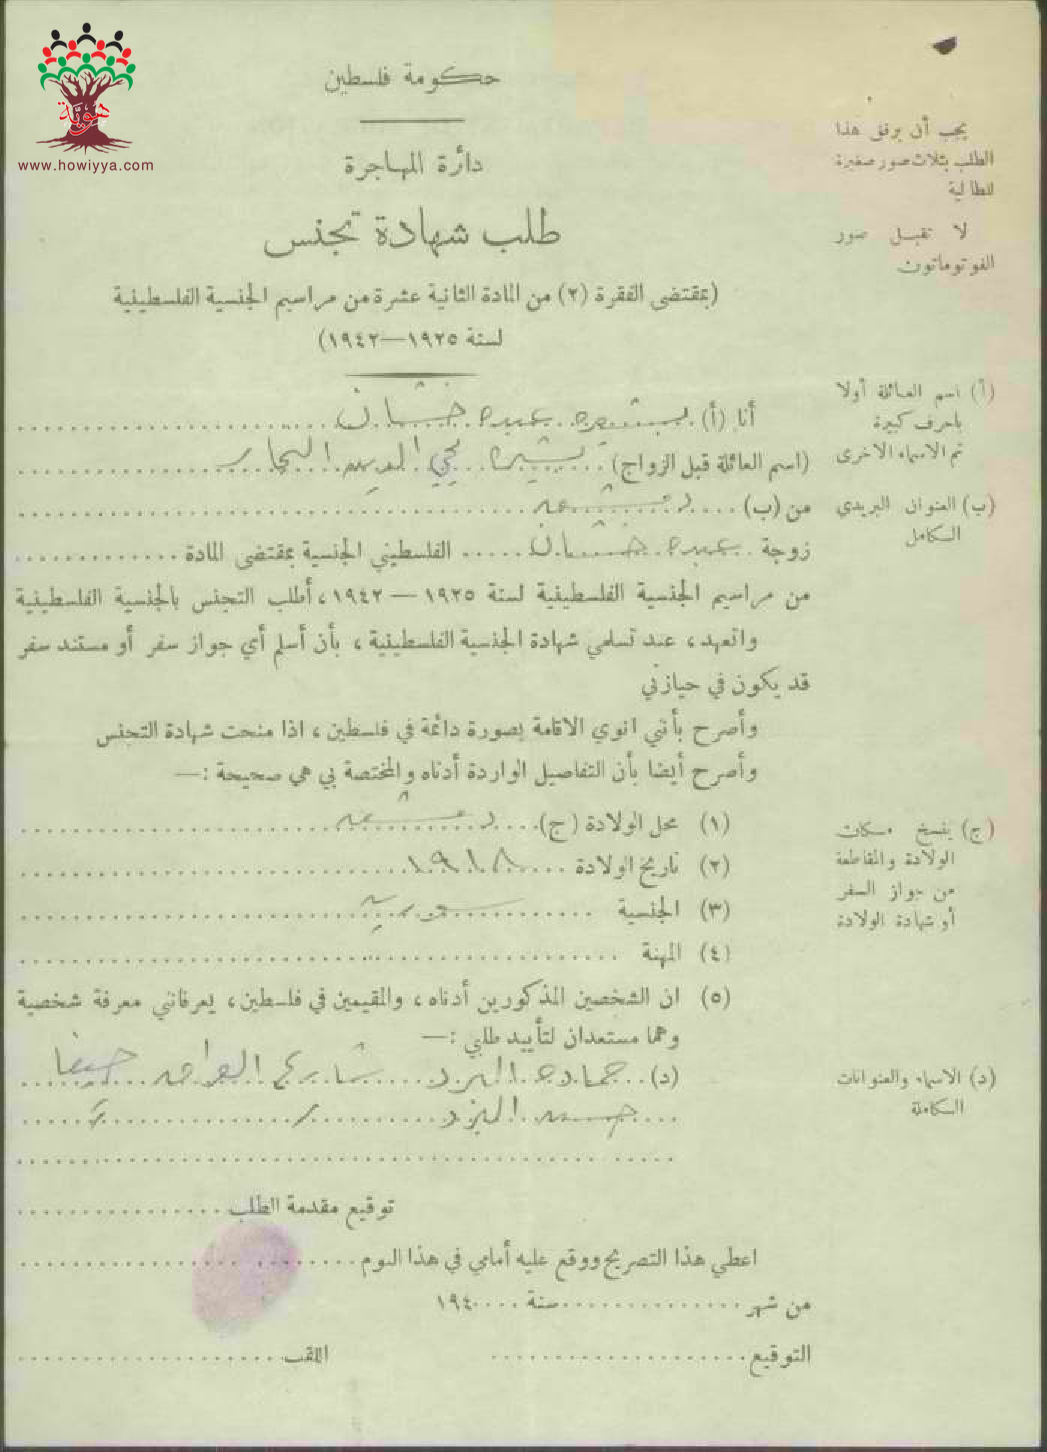 هوية
www.howiyya.com
حكومة فلسطين
دائرة المهاجرة
طلب شهادة تجنس
(بمقتضى الفقرة (٢) من المادة الثانية عشرة من مراسيم الجنسية الفلسطينية
لسنة ١٩٢٥—١٩٤٢)
يجب أن يرفق هذا
الطلب بثلاث صور صغيرة
للطالبة
لا تقبل صور
الفوتوماتون
أنا (أ) بشيره عبده خشان
(اسم العائلة قبل الزواج) بشيره محيي الدين النجار
(أ) اسم العائلة أولا
باحرف كبيرة
ثم الاسماء الاخرى
من (ب) دمشق
(ب) العنوان البريدي
الكامل
زوجة عبده خشان الفلسطيني الجنسية بمقتضى المادة
من مراسيم الجنسية الفلسطينية لسنة ١٩٢٥ — ١٩٤٢، أطلب التجنس بالجنسية الفلسطينية
واتعهد، عند تسلمي شهادة الجنسية الفلسطينية، بأن أسلم أي جواز سفر أو مستند سفر
قد يكون في حيازتي
وأصرح بأنني انوي الاقامة بصورة دائمة في فلسطين، اذا منحت شهادة التجنس
وأصرح أيضا بأن التفاصيل الواردة أدناه والمختصة بي هي صحيحة :—
(١) محل الولادة (ج) دمشق
(٢) تاريخ الولادة ١٩١٨
(٣) الجنسية سورية
(٤) المهنة
(ج) ينسخ مكان
الولادة والمقاطعة
من جواز السفر
أو شهادة الولادة
(٥) ان الشخصين المذكورين أدناه، والمقيمين في فلسطين، يعرفانني معرفة شخصية
وهما مستعدان لتأييد طلبي :—
(د) حماده اليزد شارع العراق حيفا
حسن اليزد
(د) الاسماء والعنوانات
الكاملة
توقيع مقدمة الطلب
اعطي هذا التصريح ووقع عليه أمامي في هذا اليوم
من شهر سنة ١٩٤٠
التوقيع اللقب